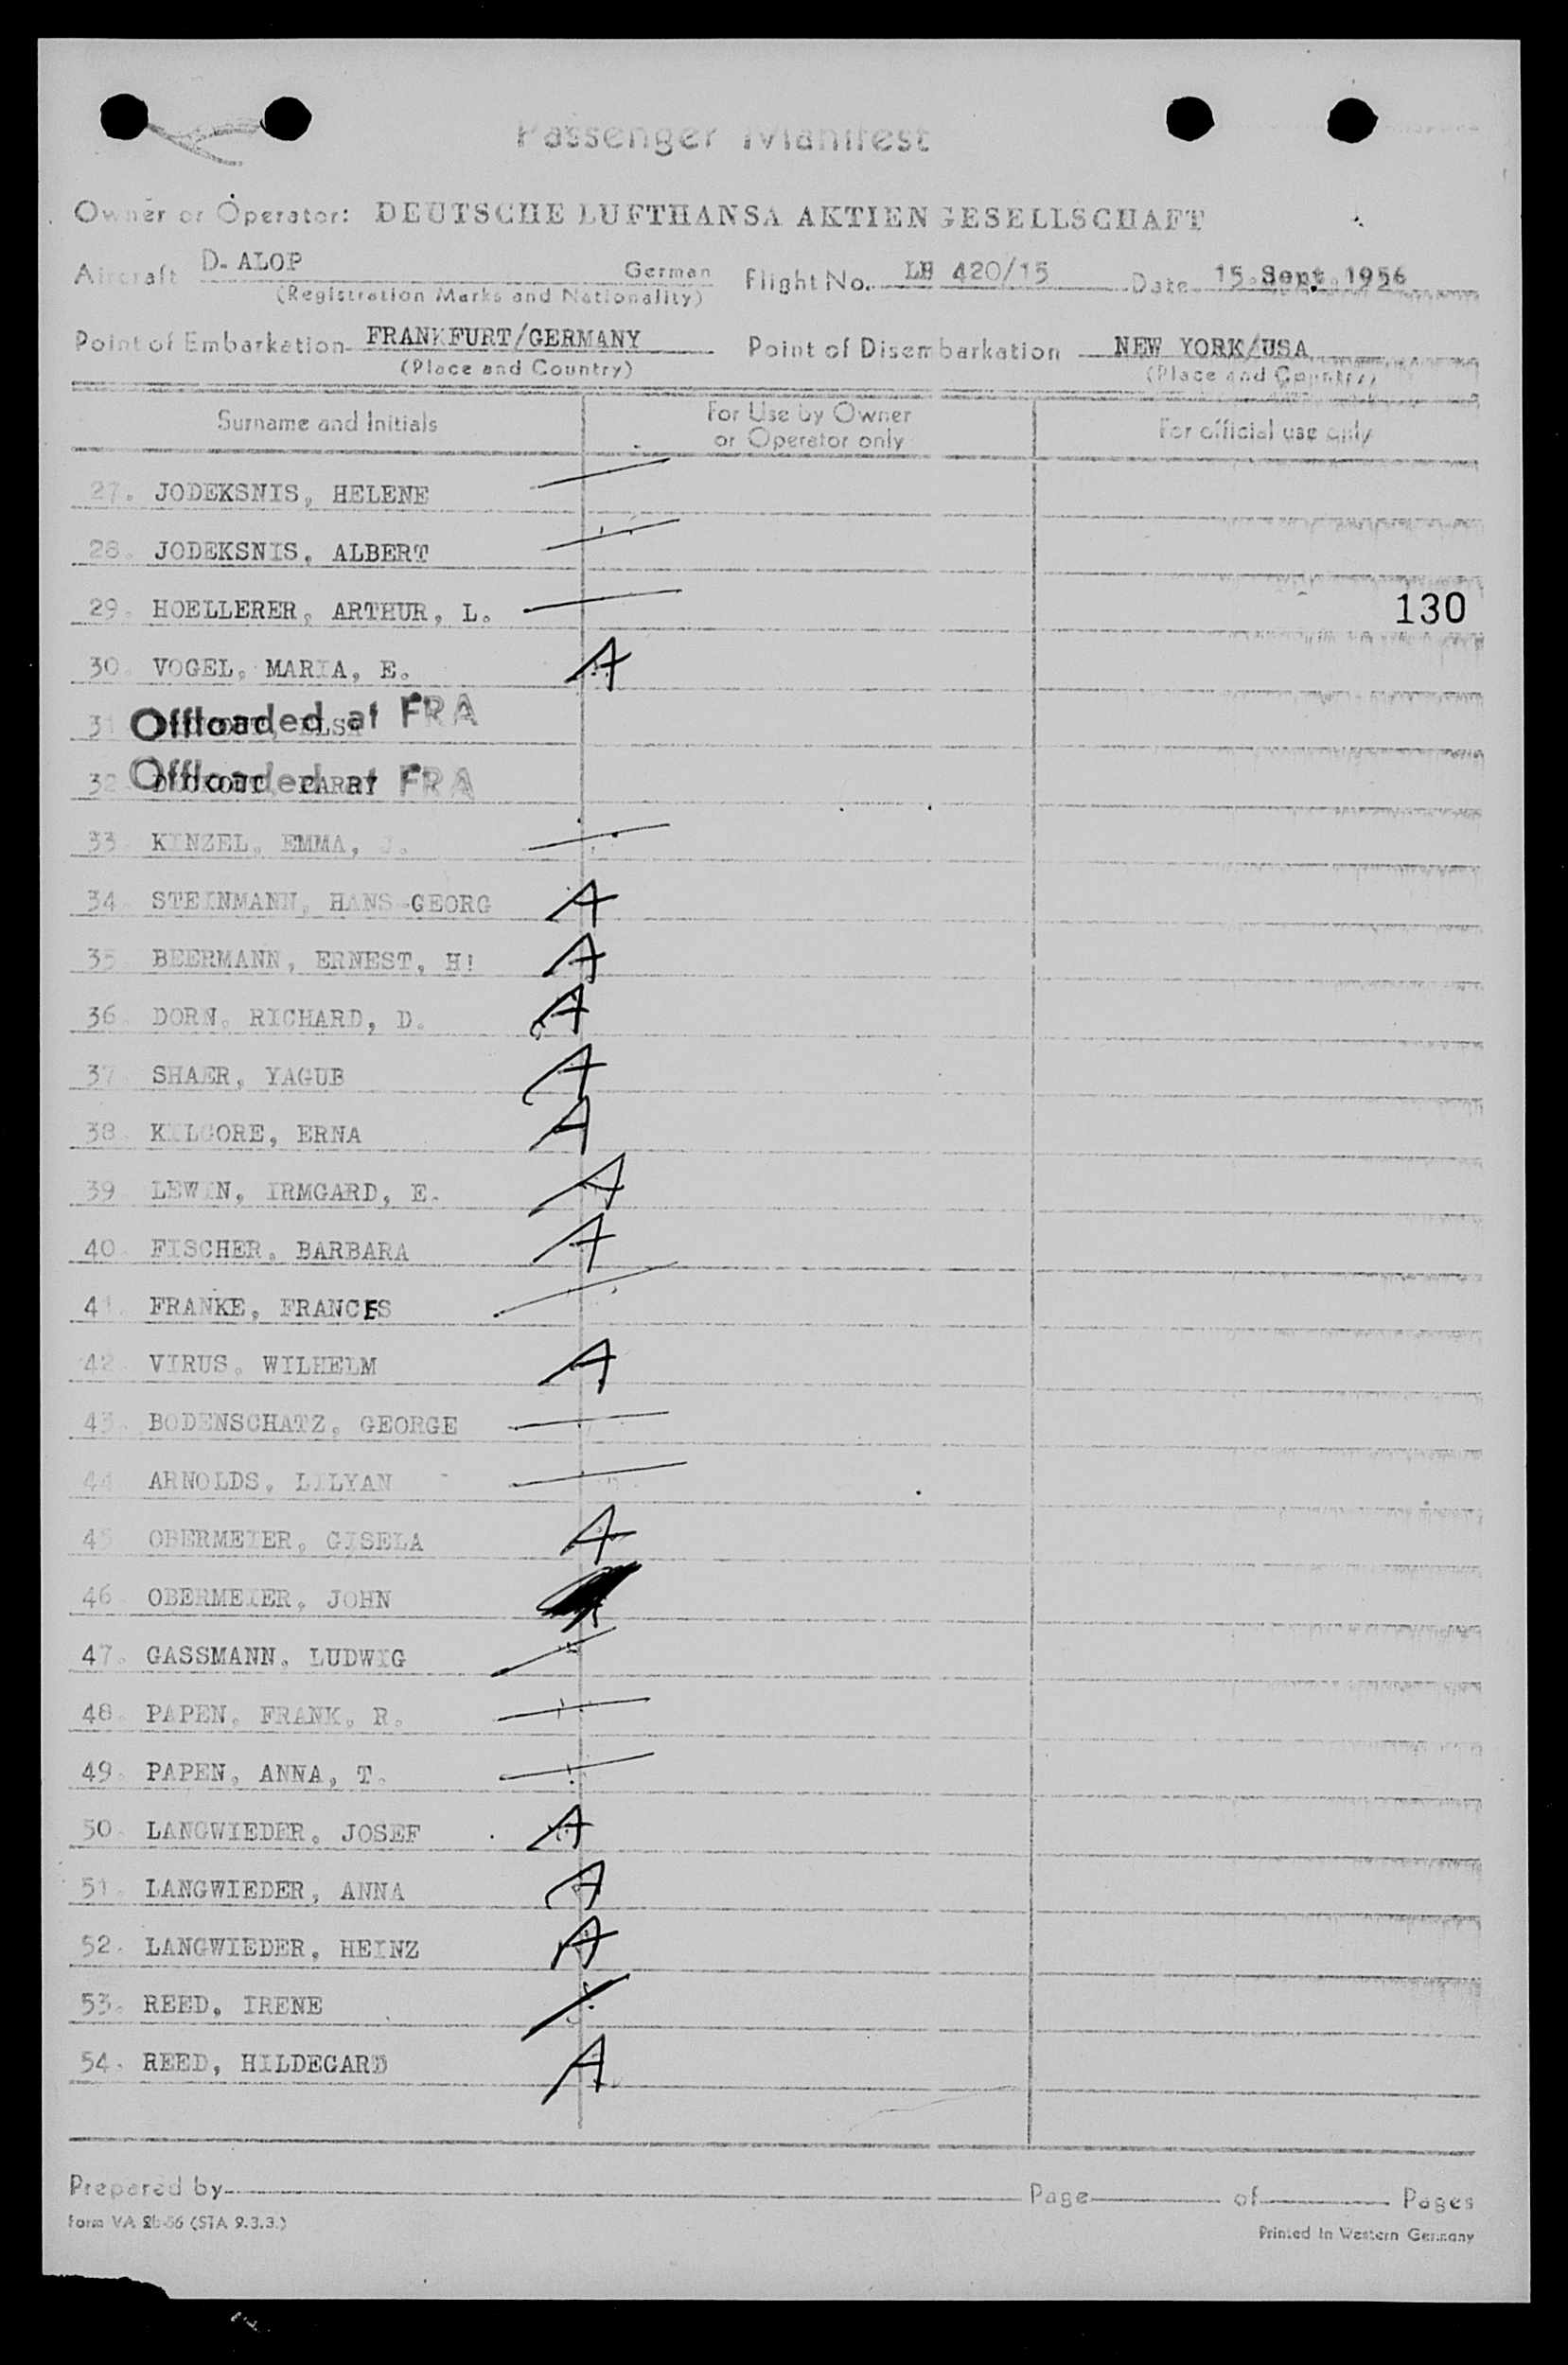 Passenger Manifest
Owner or Operator: DEUTSCHE LUFTHANSA AKTIENGESELLSCHAFT
Aircraft D-ALOP German Flight No. LH 420/15 Date 15. Sept. 1956
(Registration Marks and Nationality)
Point of Embarkation FRANKFURT/GERMANY Point of Disembarkation NEW YORK/USA
(Place and Country) (Place and Country)
Surname and Initials For Use by Owner or Operator only For official use only
27. JODEKSNIS, HELENE
28. JODEKSNIS, ALBERT
29. HOELLERER, ARTHUR, L. 130
30. VOGEL, MARIA, E. A
31 Offloaded at FRA
32 Offloaded at FRA
33. KINZEL, EMMA, J.
34. STEINMANN, HANS-GEORG A
35. BEERMANN, ERNEST, H! A
36. DORN, RICHARD, D. A
37. SHAER, YAGUB A
38. KILGORE, ERNA A
39. LEWIN, IRMGARD, E. A
40. FISCHER, BARBARA A
41. FRANKE, FRANCES
42. VIRUS, WILHELM A
43. BODENSCHATZ, GEORGE
44. ARNOLDS, LILYAN
45. OBERMEIER, GISELA A
46. OBERMEIER, JOHN
47. GASSMANN, LUDWIG
48. PAPEN, FRANK, R.
49. PAPEN, ANNA, T.
50. LANGWIEDER, JOSEF A
51. LANGWIEDER, ANNA A
52. LANGWIEDER, HEINZ A
53. REED, IRENE
54. REED, HILDEGARD A
Prepared by Page of Pages
Form VA 2b-56 (STA 9.3.3.) Printed in Western Germany